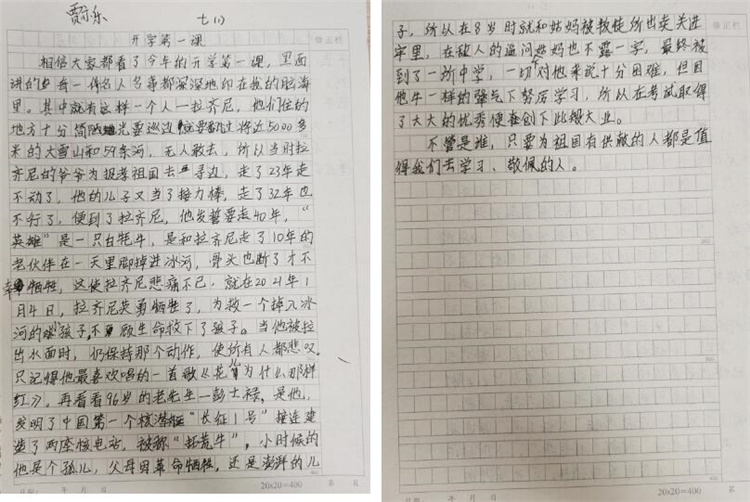 贾尔乐 七(1)
开学第一课
修正栏
相信大家都看了今年的开学第一课，里面
讲的每一件名人名事都深深地印在我的脑海
里。其中就有这样一个人一拉齐尼，他们住的
地方十分简陋光要巡边就要翻过将近5000多
米的大雪山和59条河，无人敢去，所以当时拉
齐尼的爷爷为报考祖国去寻边，走了23年走
不动了，他的儿子又当了接力棒，走了32年也
不行了，便到了拉齐尼，他发誓要走40年，“
英雄”是一只白牦牛，是和拉齐尼走了10年的
老伙伴在一天里脚掉进冰河，骨头也断了才不
幸牺牲，这使拉齐尼悲痛不已，就在2021年1
月4日，拉齐尼英勇牺牲了，为救一个掉入冰
河的孩子，不顾生命救下了孩子。当他被拉
出水面时，仍保持那个动作，使所有人都悲叹。
只记得他最喜欢唱的一首歌《花儿为什么那样
红》。再看看96岁的老先生一彭士禄，是他，
发明了中国第一个核潜艇“长征1号”接连建
造了两座核电站，被称“拓荒牛”，小时候的
他是个孤儿，父母因革命牺牲，还是澎湃的儿
年 月 日 20x20=400 第 页
子，所以在8岁时就和姑妈被叛徒所出卖关进
牢里，在敌人的逼问姑妈也不露一字，最终被
到了一所中学，一切对他来说十分困难，但因
他牛一样的犟气下努力学习，所以在考试取得
了大大的优秀便春创下此般大业。
不管是谁，只要为祖国有供献的人都是值
得我们去学习、敬佩的人。
日期： 年 月 日 20x20=400 第 页